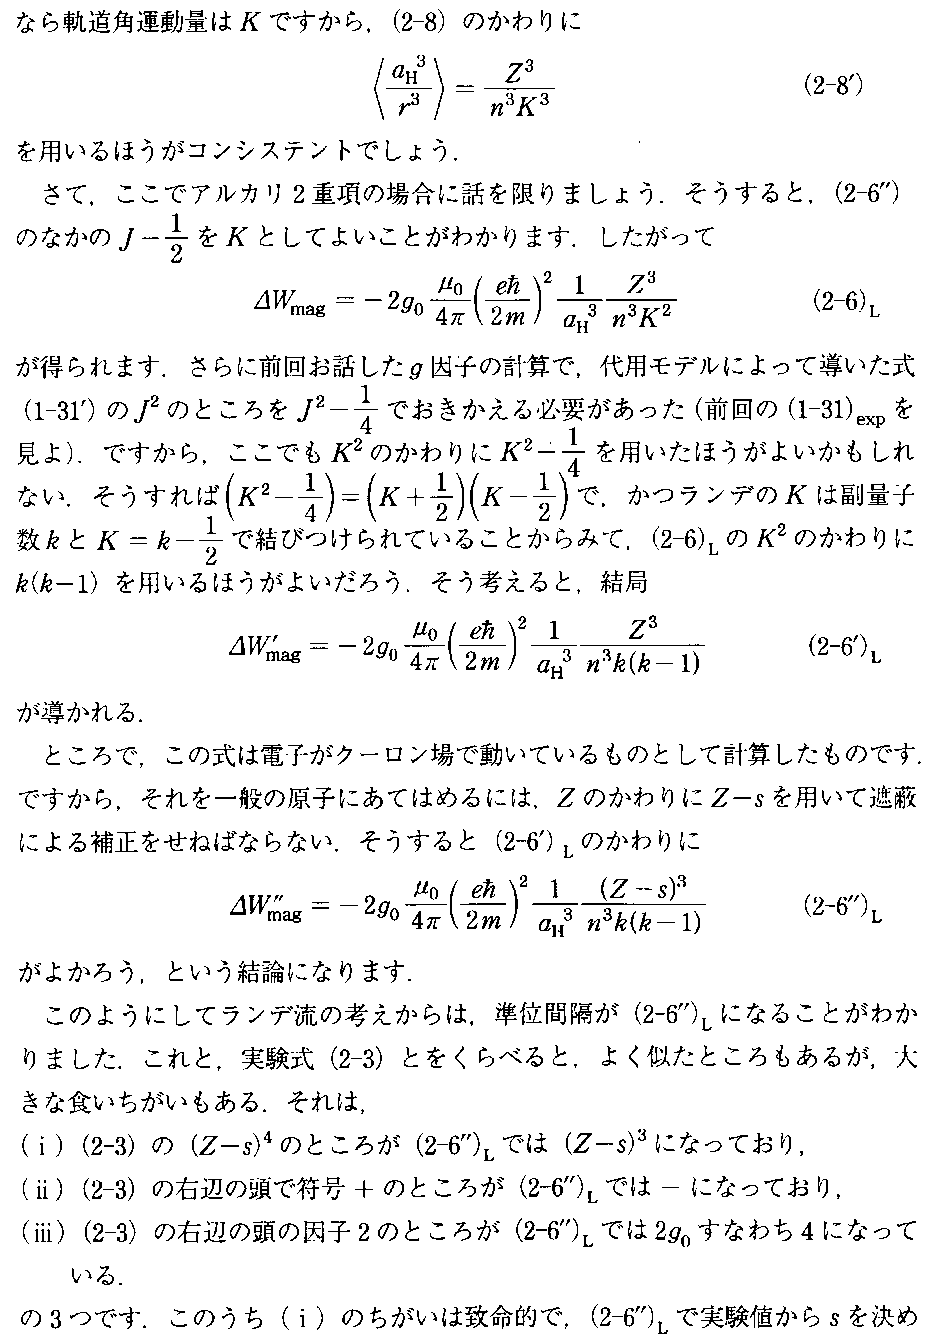 なら軌道角運動量は K ですから，(2-8) のかわりに
⟨a_H³/r³⟩ = Z³/(n³K³)　(2-8′)
を用いるほうがコンシステントでしょう．
さて，ここでアルカリ2重項の場合に話を限りましょう．そうすると，(2-6″)
のなかの J − 1/2 を K としてよいことがわかります．したがって
ΔW_mag = −2g₀ (μ₀/4π)(eħ/2m)² (1/a_H³) Z³/(n³K²)　(2-6)_L
が得られます．さらに前回お話した g 因子の計算で，代用モデルによって導いた式
(1-31′) の J² のところを J² − 1/4 でおきかえる必要があった (前回の (1-31)_exp を
見よ)．ですから，ここでも K² のかわりに K² − 1/4 を用いたほうがよいかもしれ
ない．そうすれば (K² − 1/4) = (K + 1/2)(K − 1/2) で，かつランデの K は副量子
数 k と K = k − 1/2 で結びつけられていることからみて，(2-6)_L の K² のかわりに
k(k−1) を用いるほうがよいだろう．そう考えると，結局
ΔW′_mag = −2g₀ (μ₀/4π)(eħ/2m)² (1/a_H³) Z³/(n³k(k−1))　(2-6′)_L
が導かれる．
ところで，この式は電子がクーロン場で動いているものとして計算したものです．
ですから，それを一般の原子にあてはめるには，Z のかわりに Z−s を用いて遮蔽
による補正をせねばならない．そうすると (2-6′)_L のかわりに
ΔW″_mag = −2g₀ (μ₀/4π)(eħ/2m)² (1/a_H³) (Z−s)³/(n³k(k−1))　(2-6″)_L
がよかろう，という結論になります．
このようにしてランデ流の考えからは，準位間隔が (2-6″)_L になることがわか
りました．これと，実験式 (2-3) とをくらべると，よく似たところもあるが，大
きな食いちがいもある．それは，
(ⅰ) (2-3) の (Z−s)⁴ のところが (2-6″)_L では (Z−s)³ になっており，
(ⅱ) (2-3) の右辺の頭で符号 + のところが (2-6″)_L では − になっており，
(ⅲ) (2-3) の右辺の頭の因子 2 のところが (2-6″)_L では 2g₀ すなわち 4 になって
いる．
の3つです．このうち (ⅰ) のちがいは致命的で，(2-6″)_L で実験値から s を決め